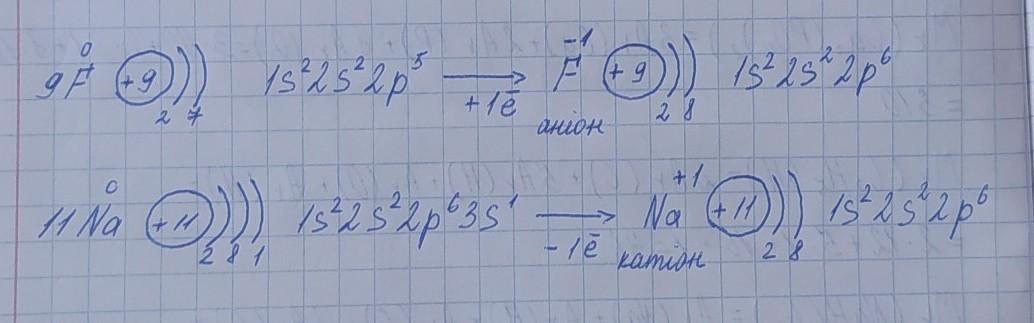 9F⁰ +9 ))) 2 7 1s²2s²2p⁵ ⟶ +1ē F⁻¹ +9 ))) 2 8 1s²2s²2p⁶
аніон
11Na⁰ +11 )))) 2 8 1 1s²2s²2p⁶3s¹ ⟶ -1ē Na⁺¹ +11 ))) 2 8 1s²2s²2p⁶
катіон